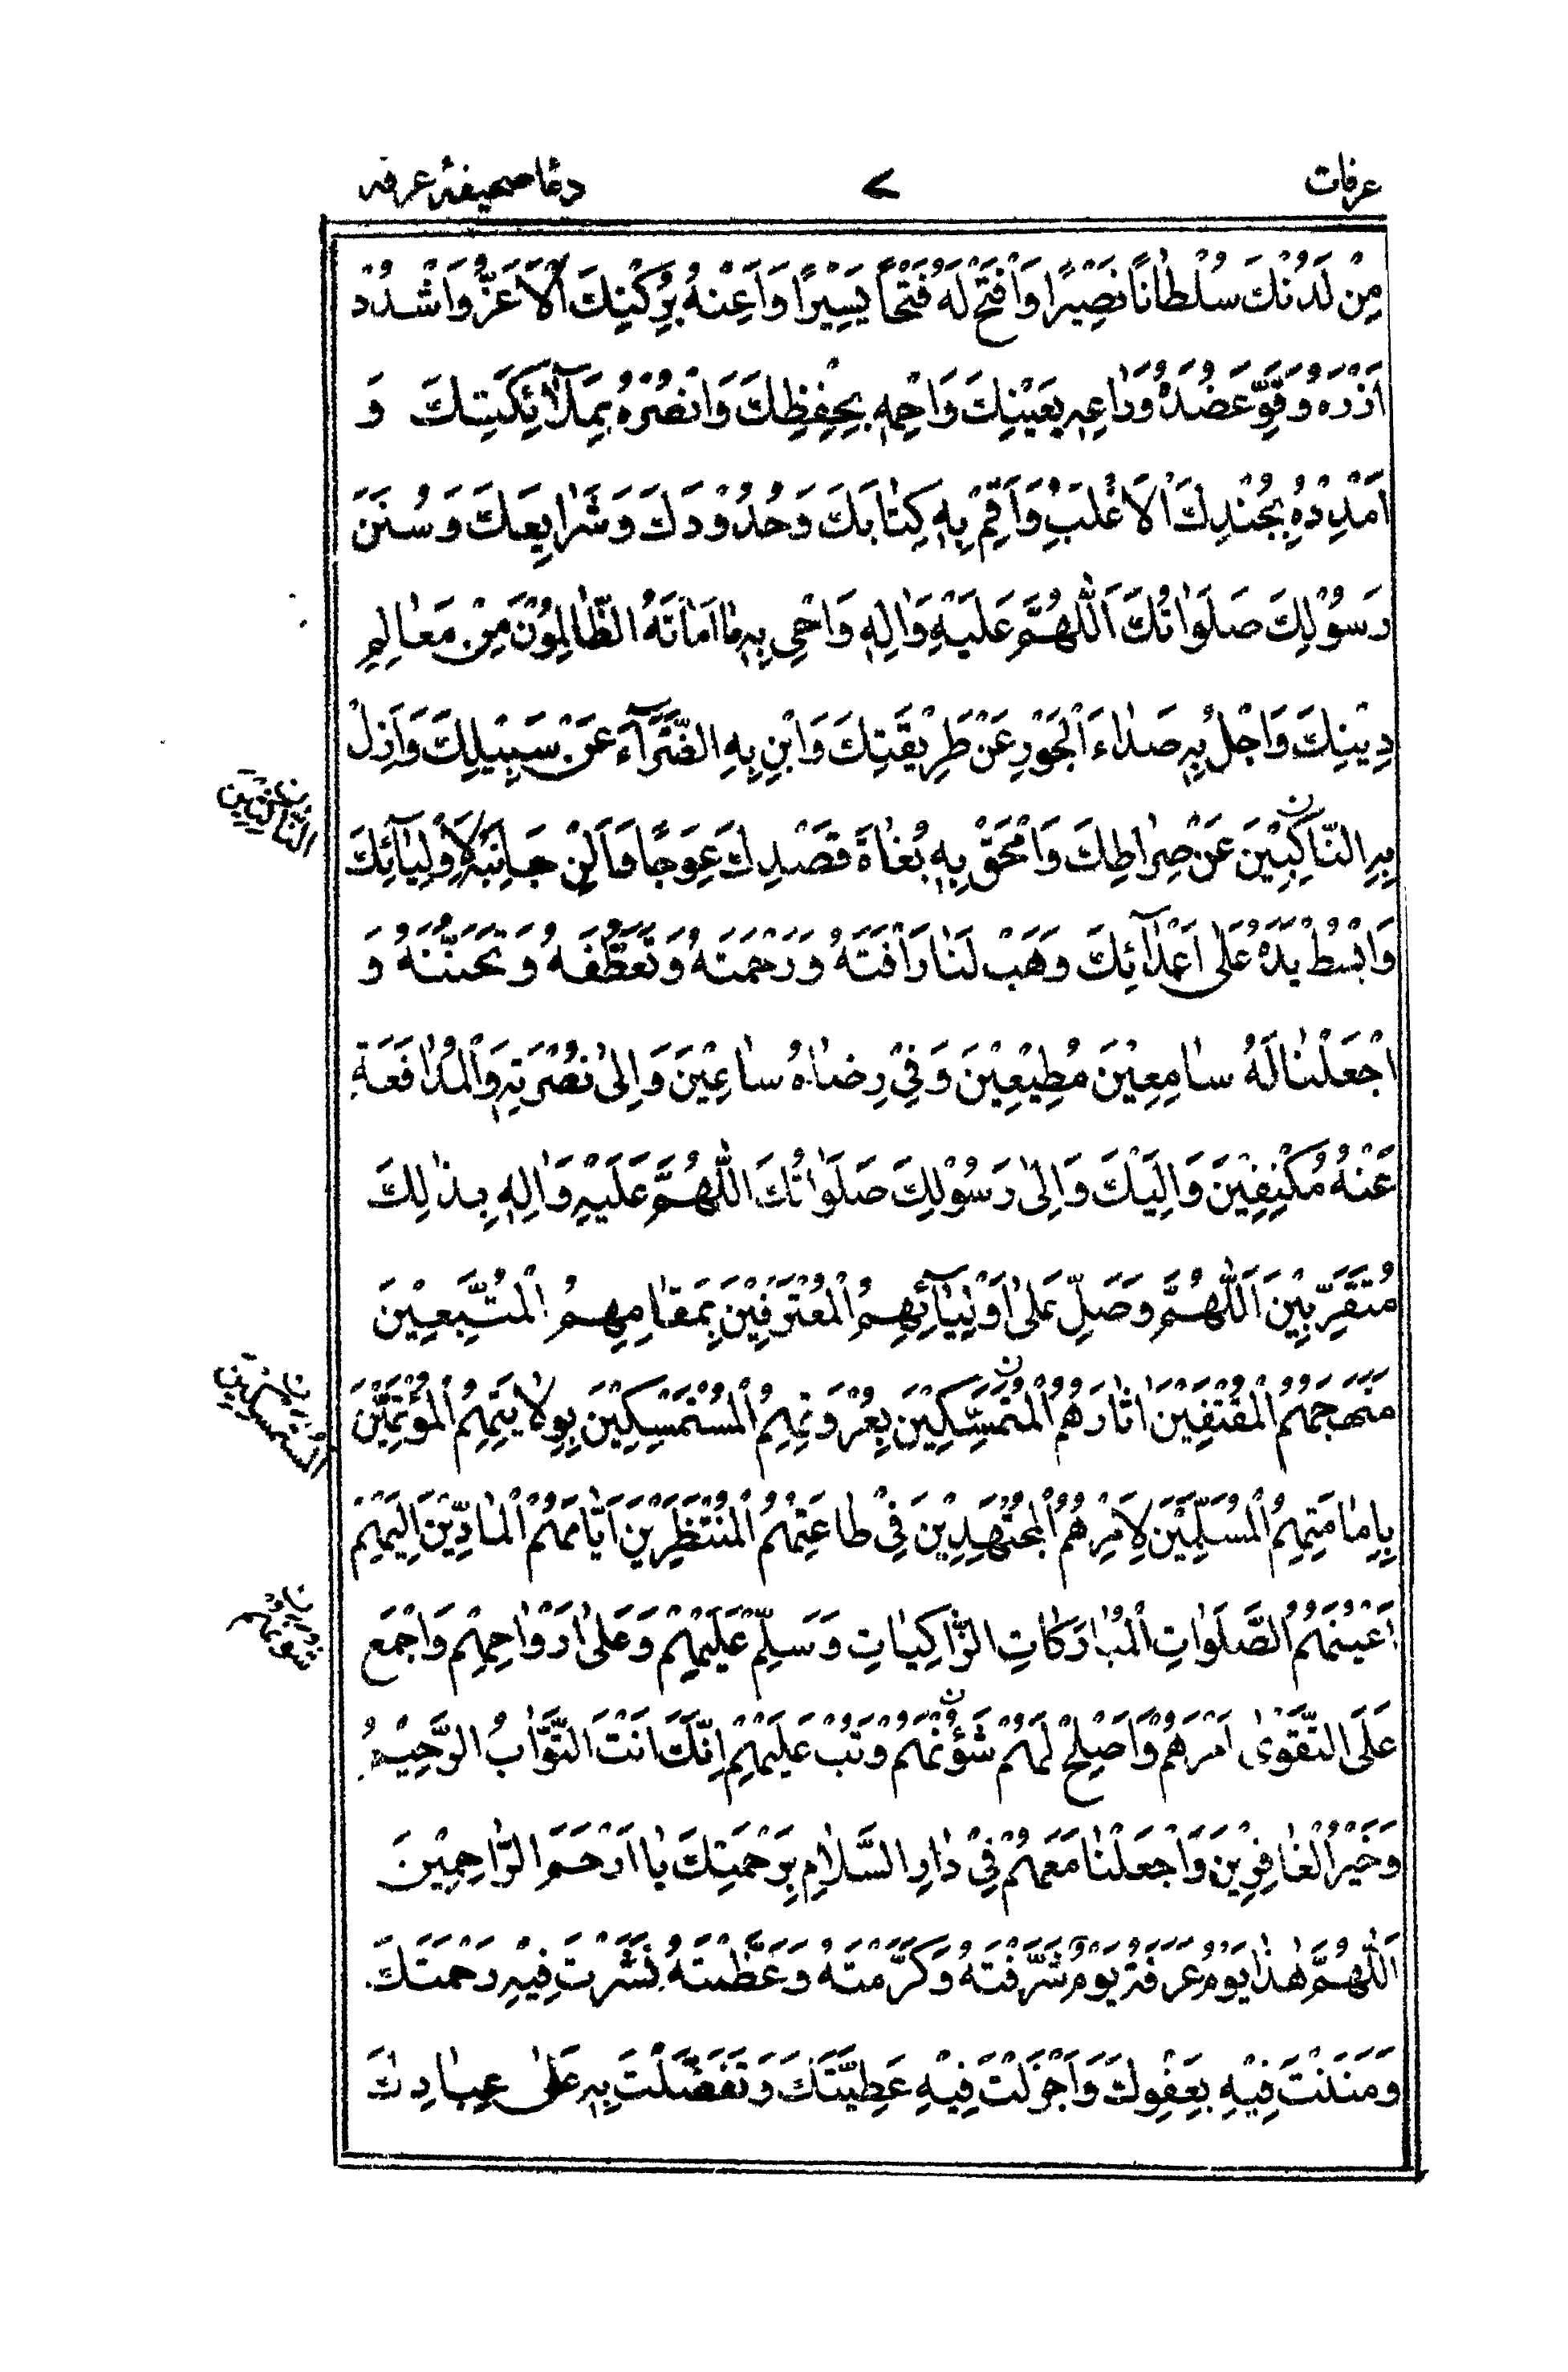 عرفات ۷ دعا صحیفهٔ عرفه
مِنْ لَدُنْكَ سُلْطَانًا نَصِيْرًا وَافْتَحْ لَهُ فَتْحًا يَسِيْرًا وَاَعِنْهُ بِرُكْنِكَ الْاَعَزِّ وَاشْدُدْ
اَزْرَهُ وَقَوِّ عَضُدَهُ وَرَاعِهِ بِعَيْنِكَ وَاحْمِهِ بِحِفْظِكَ وَانْصُرْهُ بِمَلٰٓائِكَتِكَ وَ
اَمْدِدْهُ بِجُنْدِكَ الْاَغْلَبِ وَاَقِمْ بِهِ كِتَابَكَ وَحُدُوْدَكَ وَشَرَايِعَكَ وَسُنَنَ
رَسُوْلِكَ صَلَوَاتُكَ اَللّٰهُمَّ عَلَيْهِ وَاٰلِهِ وَاَحْيِ بِهِ مَا اَمَاتَهُ الظَّالِمُوْنَ مِنْ مَعَالِمِ
دِيْنِكَ وَاجْلُ بِهِ صَدَاءَ الْجَوْرِ عَنْ طَرِيْقَتِكَ وَابْنِ بِهِ الضَّرَّآءَ عَنْ سَبِيْلِكَ وَاَزِلْ
بِهِ النَّاكِبِيْنَ عَنْ صِرَاطِكَ وَامْحَقْ بِهِ بُغَاةَ قَصْدِكَ عِوَجًا وَاَلِنْ جَانِبَهُ لِاَوْلِيَآئِكَ
وَابْسُطْ يَدَهُ عَلٰى اَعْدَآئِكَ وَهَبْ لَنَا رَاْفَتَهُ وَرَحْمَتَهُ وَتَعَطُّفَهُ وَتَحَنُّنَهُ وَ
اجْعَلْنَا لَهُ سَامِعِيْنَ مُطِيْعِيْنَ وَفِيْ رِضَاهُ سَاعِيْنَ وَاِلٰى نُصْرَتِهِ وَالْمُدَافَعَةِ
عَنْهُ مُكْنِفِيْنَ وَاِلَيْكَ وَاِلٰى رَسُوْلِكَ صَلَوَاتُكَ اللّٰهُمَّ عَلَيْهِ وَاٰلِهِ بِذٰلِكَ
مُتَقَرِّبِيْنَ اَللّٰهُمَّ وَصَلِّ عَلٰى اَوْلِيَآئِهِمُ الْمُعْتَرِفِيْنَ بِمَقَامِهِمُ الْمُتَّبِعِيْنَ
مَنْهَجَهُمُ الْمُقْتَفِيْنَ اٰثَارَهُمُ الْمُتَمَسِّكِيْنَ بِعُرْوَتِهِمُ الْمُسْتَمْسِكِيْنَ بِوِلَايَتِهِمُ الْمُؤْتَمِّيْنَ
بِاِمَامَتِهِمُ الْمُسَلِّمِيْنَ لِاَمْرِهِمُ الْمُجْتَهِدِيْنَ فِيْ طَاعَتِهِمُ الْمُنْتَظِرِيْنَ اَيَّامَهُمُ الْمَادِّيْنَ اِلَيْهِمْ
اَعْيُنَهُمُ الصَّلَوَاتِ الْمُبَارَكَاتِ الزَّاكِيَاتِ وَسَلِّمْ عَلَيْهِمْ وَعَلٰى اَرْوَاحِهِمْ وَاجْمَعْ
عَلَى التَّقْوٰى اَمْرَهُمْ وَاَصْلِحْ لَهُمْ شُؤُنَهُمْ وَتُبْ عَلَيْهِمْ اِنَّكَ اَنْتَ التَّوَّابُ الرَّحِيْمُ
وَخَيْرُ الْغَافِرِيْنَ وَاجْعَلْنَا مَعَهُمْ فِيْ دَارِ السَّلَامِ بِرَحْمَتِكَ يَا اَرْحَمَ الرَّاحِمِيْنَ
اَللّٰهُمَّ هٰذَا يَوْمُ عَرَفَةَ يَوْمٌ شَرَّفْتَهُ وَكَرَّمْتَهُ وَعَظَّمْتَهُ نَشَرْتَ فِيْهِ رَحْمَتَكَ
وَمَنَنْتَ فِيْهِ بِعَفْوِكَ وَاَجْزَلْتَ فِيْهِ عَطِيَّتَكَ وَتَفَضَّلْتَ بِهِ عَلٰى عِبَادِكَ